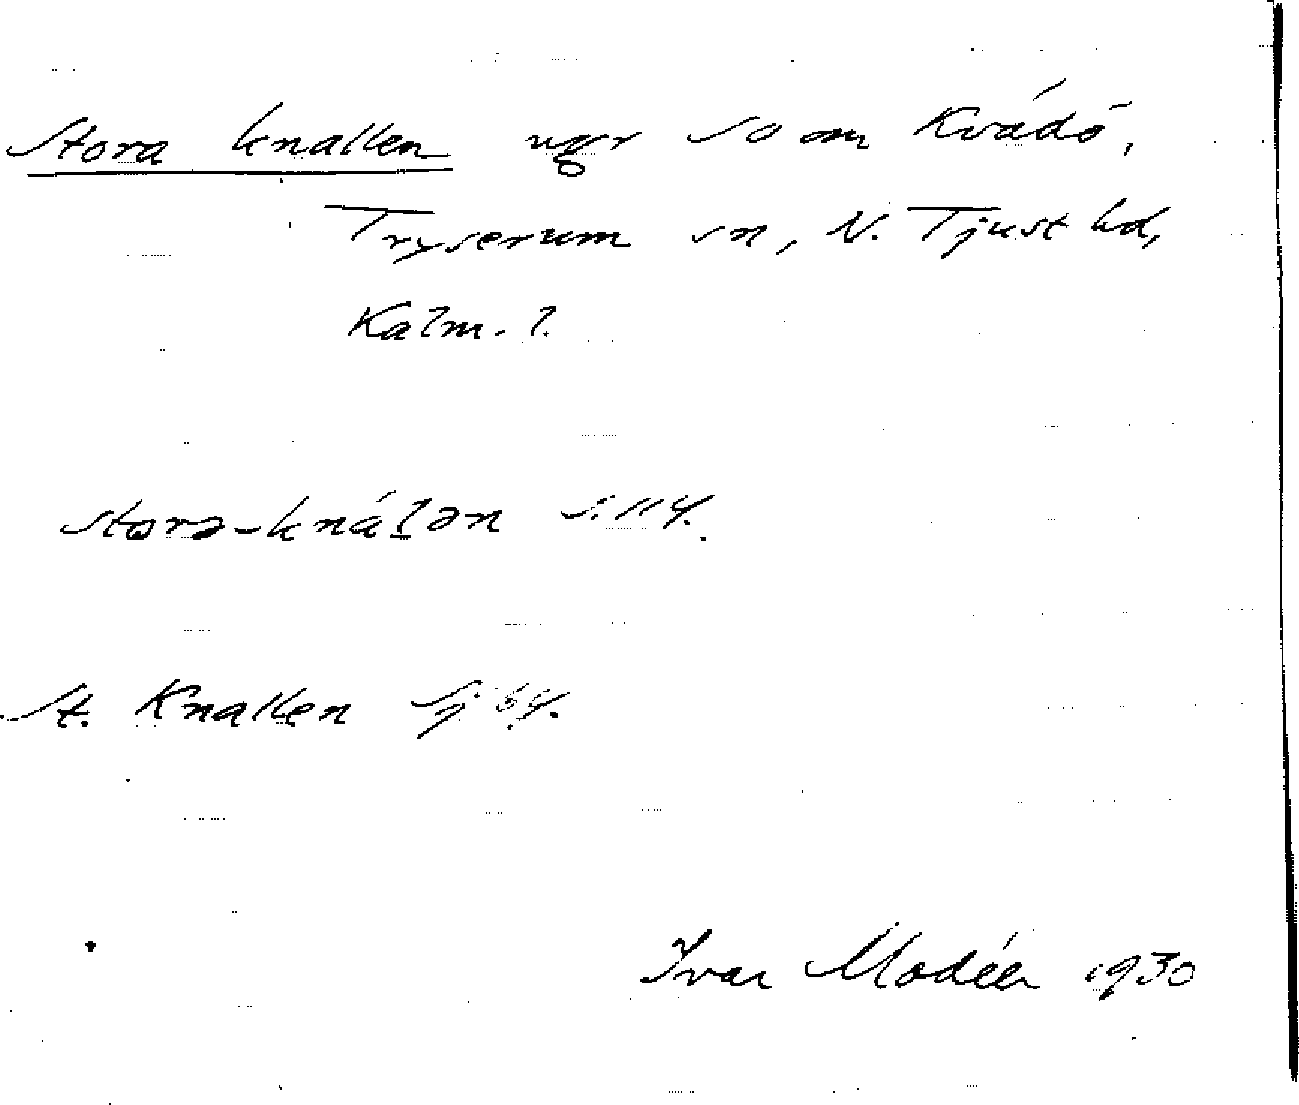 Stora knallen ugr SO om Kvädö,
Tryserum sn, N. Tjust hd,
Kalm. l.
storə-knálən S. 114.
St. Knallen Sj. 64.
Ivar Modéer 1930